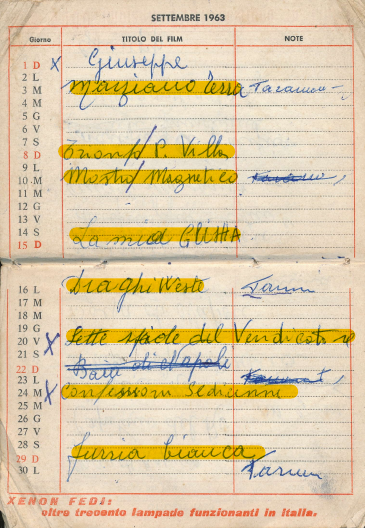 SETTEMBRE 1963
Giorno TITOLO DEL FILM NOTE
1 D x Giuseppe
2 L
3 M Marziano Terra
4 M
5 G
6 V
7 S
8 D P. Villa
9 L
10 M Mostro Magnetico
11 M
12 G
13 V
14 S La mia GEISHA
15 D
16 L Draghi West
17 M
18 M
19 G
20 V x Sette spade del Vendicatore
21 S
22 D Baia di Napole
23 L
24 M x Confessioni
25 M
26 G
27 V
28 S
29 D Furia bianca
30 L
XENON FEDI:
oltre trecento lampade funzionanti in Italia.